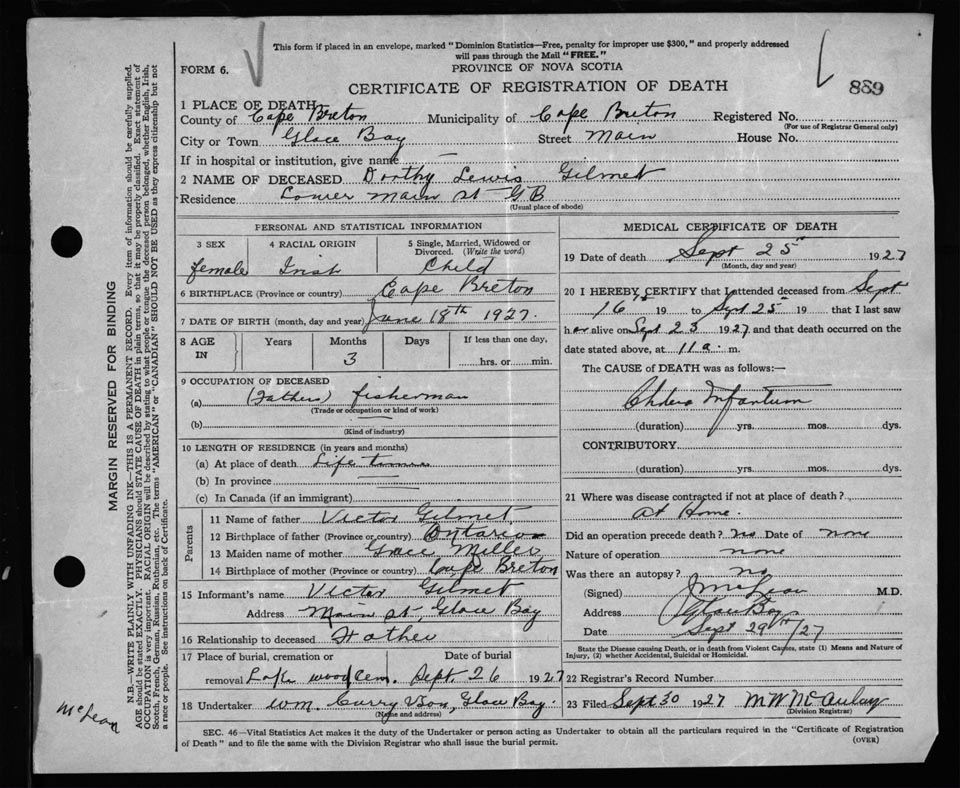 This form if placed in an envelope, marked "Dominion Statistics—Free, penalty for improper use $300," and properly addressed
will pass through the Mail "FREE."
FORM 6.
PROVINCE OF NOVA SCOTIA
CERTIFICATE OF REGISTRATION OF DEATH
889
1 PLACE OF DEATH
County of Cape Breton Municipality of Cape Breton Registered No.
(For use of Registrar General only)
City or Town Glace Bay Street Main House No.
If in hospital or institution, give name —
2 NAME OF DECEASED Dorthy Lewis Gilmet
Residence Lower Main st G B
(Usual place of abode)
PERSONAL AND STATISTICAL INFORMATION
3 SEX
female
4 RACIAL ORIGIN
Irish
5 Single, Married, Widowed or
Divorced. (Write the word)
Child
6 BIRTHPLACE (Province or country) Cape Breton
7 DATE OF BIRTH (month, day and year) June 18th 1927.
8 AGE
IN
Years
Months
3
Days
If less than one day,
hrs. or min.
9 OCCUPATION OF DECEASED
(a) (Fathers) fisherman
(Trade or occupation or kind of work)
(b)
(Kind of industry)
10 LENGTH OF RESIDENCE (in years and months)
(a) At place of death Life time
(b) In province
(c) In Canada (if an immigrant)
Parents
11 Name of father Victor Gilmet
12 Birthplace of father (Province or country) Ontario
13 Maiden name of mother Grace Miller
14 Birthplace of mother (Province or country) Cape Breton
15 Informant's name Victor Gilmet
Address Main st, Glace Bay
16 Relationship to deceased Father
17 Place of burial, cremation or Date of burial
removal wood Cem. Sept 26 1927
18 Undertaker Wm. Curry & Son, Glace Bay.
(Name and address)
MEDICAL CERTIFICATE OF DEATH
19 Date of death Sept 25 1927
(Month, day and year)
20 I HEREBY CERTIFY that I attended deceased from Sept
16 19 to Sept 25 19 that I last saw
her alive on Sept 23 1927 and that death occurred on the
date stated above, at 11 a. m.
The CAUSE of DEATH was as follows:—
Cholera Infantum
(duration) yrs. mos. dys.
CONTRIBUTORY
(duration) yrs. mos. dys.
21 Where was disease contracted if not at place of death?
At Home.
Did an operation precede death? no Date of none
Nature of operation none
Was there an autopsy? no
(Signed) McLean M.D.
Address Glace Bay
Date Sept 29th/27
State the Disease causing Death, or in death from Violent Causes, state (1) Means and Nature of
Injury, (2) whether Accidental, Suicidal or Homicidal.
22 Registrar's Record Number
23 Filed Sept 30 1927 M W McAulay
(Division Registrar)
SEC. 46—Vital Statistics Act makes it the duty of the Undertaker or person acting as Undertaker to obtain all the particulars required in the "Certificate of Registration
of Death" and to file the same with the Division Registrar who shall issue the burial permit.
(OVER)
MARGIN RESERVED FOR BINDING
N.B.—WRITE PLAINLY WITH UNFADING INK—THIS IS A PERMANENT RECORD. Every item of information should be carefully supplied.
AGE should be stated EXACTLY. PHYSICIANS should STATE CAUSE OF DEATH in plain terms, so that it may be properly classified. Exact statement of
OCCUPATION is very important. RACIAL ORIGIN will be described by stating to what people or tongue the deceased person belonged, whether English, Irish,
Scotch, French, German, Russian, Ruthenian, etc. The terms "AMERICAN" or "CANADIAN" SHOULD NOT BE USED as they express citizenship but not
a race or people. See instructions on back of Certificate.
McLean